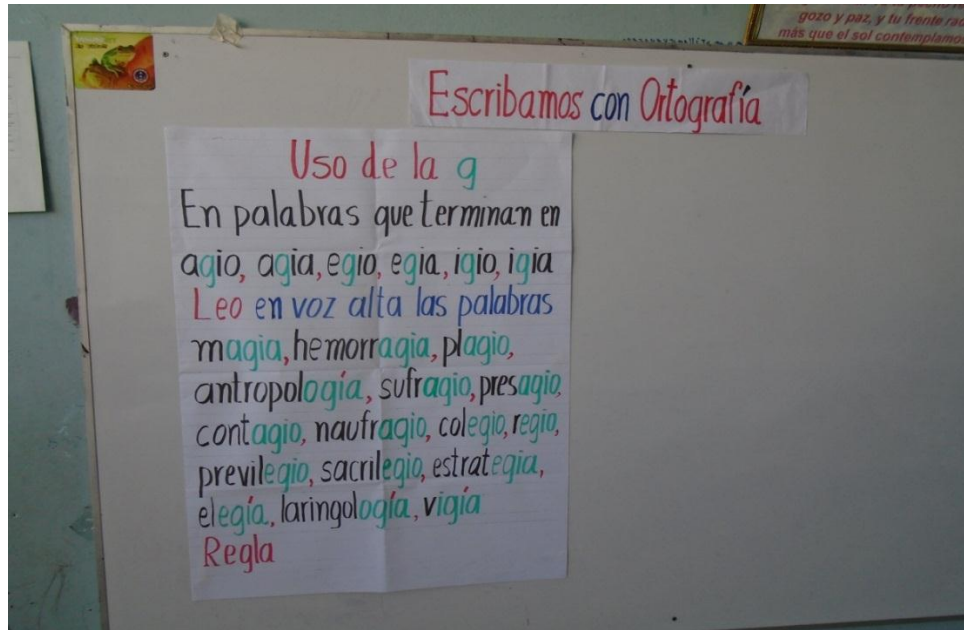 gozo y paz, y tu frente
más que el sol contemplamos
Escribamos con Ortografía
Uso de la g
En palabras que terminan en
agio, agia, egio, egia, igio, igia
Leo en voz alta las palabras
magia, hemorragia, plagio,
antropología, sufragio, presagio,
contagio, naufragio, colegio, regio,
previlegio, sacrilegio, estrategia,
elegía, laringología, vigía
Regla